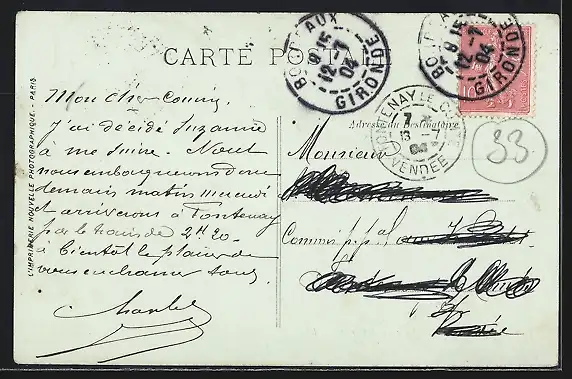 CARTE POSTALE
BORDEAUX
8 15
12-7
04
GIRONDE
BORDEAUX
8 15
12-7
04
GIRONDE
10
FONTENAY-LE-COMTE
7
13 -7
04
VENDÉE
33
Adresse du Destinataire
L'IMPRIMERIE NOUVELLE PHOTOGRAPHIQUE. - PARIS
Mon cher Cousin,
J'ai décidé Suzanne
à me suivre. Nous
nous embarquerons donc
demain matin mercredi
et arriverons à Fontenay
par le train de 2H 20.
à bientôt le plaisir de
vous embrasser tous.
Charles
Monsieur
Commis p.pal